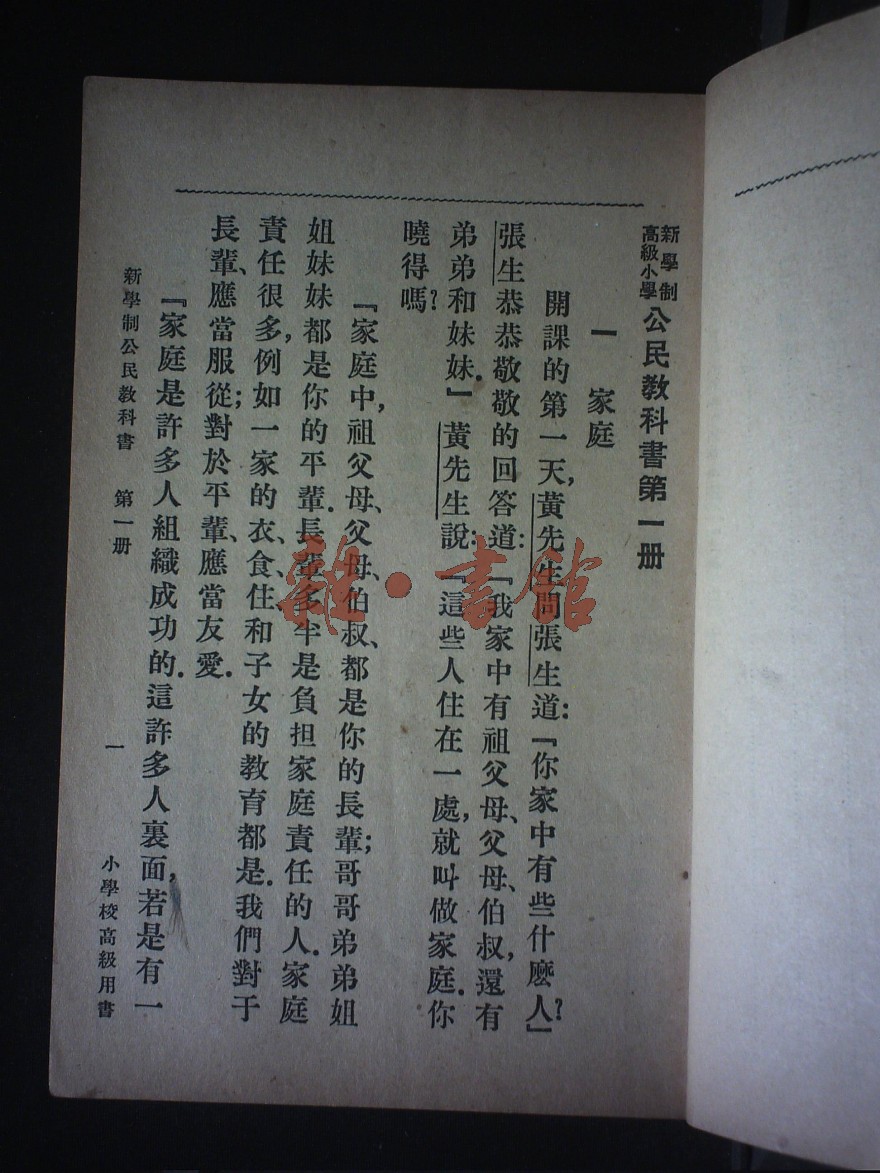 新學制
高級小學
公民教科書第一册
一 家庭
開課的第一天,黃先生問張生道:『你家中有些什麽人?』
張生恭恭敬敬的回答道:『我家中有祖父母、父母、伯叔,還有
弟弟和妹妹.』黃先生說:『這些人住在一處,就叫做家庭.你
曉得嗎?
『家庭中,祖父母、父母、伯叔、都是你的長輩;哥哥弟弟姐
姐妹妹都是你的平輩.長輩多半是負担家庭責任的人.家庭
責任很多,例如一家的衣、食、住、和子女的教育都是.我們對于
長輩、應當服從;對於平輩、應當友愛.
『家庭是許多人組織成功的.這許多人裏面,若是有一
新學制公民教科書 第一册 一 小學校高級用書
雜·書館